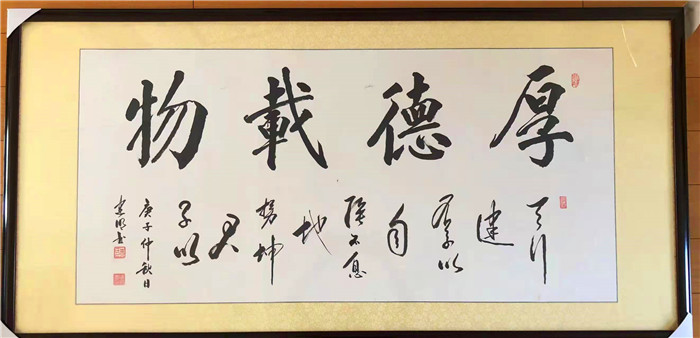 厚德載物
天行
健
君子以
自
强不息
地
势坤
君
子以
庚子仲秋日